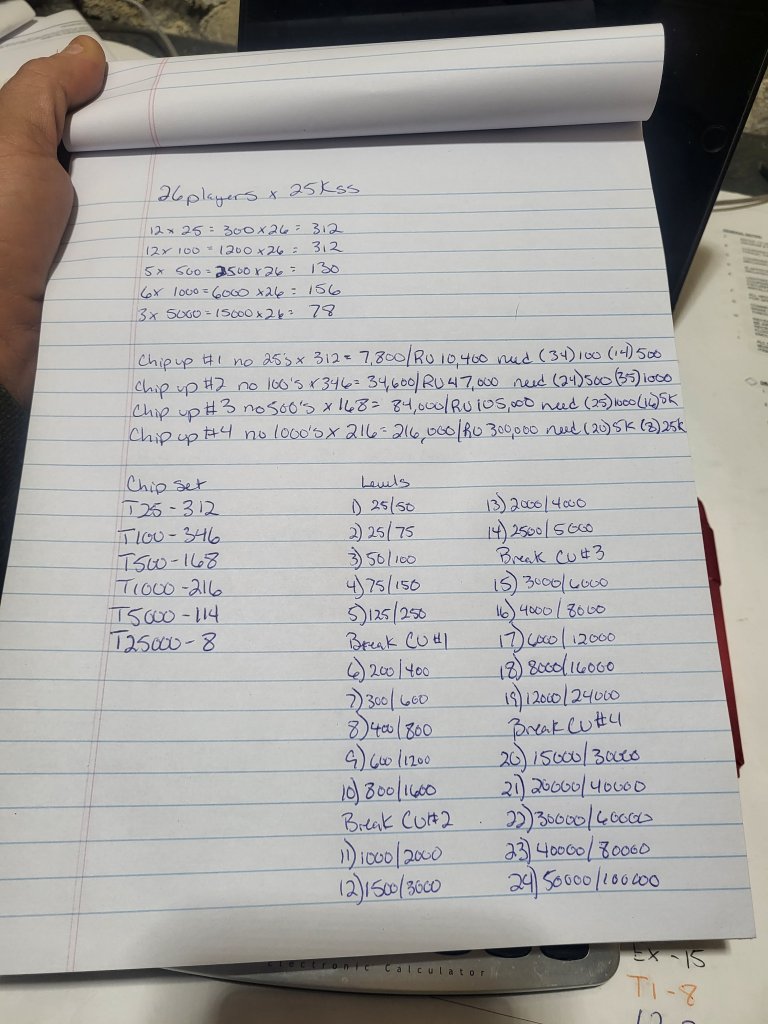 26 players x 25K ss
12 x 25 = 300 x 26 = 312
12 x 100 = 1200 x 26 = 312
5 x 500 = 2500 x 26 = 130
6 x 1000 = 6000 x 26 = 156
3 x 5000 = 15000 x 26 = 78
Chip up #1 no 25's x 312 = 7,800/RU 10,400 need (34)100 (14)500
Chip up #2 no 100's x 346 = 34,600/RU 47,000 need (24)500 (35)1000
Chip up #3 no 500's x 168 = 84,000/RU 105,000 need (25)1000 (16)5K
Chip up #4 no 1000's x 216 = 216,000/RU 300,000 need (20)5K (8)25K
Chip Set
T25 - 312
T100 - 346
T500 - 168
T1000 - 216
T5000 - 114
T25000 - 8
Levels
1) 25/50
2) 25/75
3) 50/100
4) 75/150
5) 125/250
Break CU #1
6) 200/400
7) 300/600
8) 400/800
9) 600/1200
10) 800/1600
Break CU #2
11) 1000/2000
12) 1500/3000
13) 2000/4000
14) 2500/5000
Break CU #3
15) 3000/6000
16) 4000/8000
17) 6000/12000
18) 8000/16000
19) 12000/24000
Break CU #4
20) 15000/30000
21) 20000/40000
22) 30000/60000
23) 40000/80000
24) 50000/100000
Electronic Calculator
EX - 15
T1 - 8